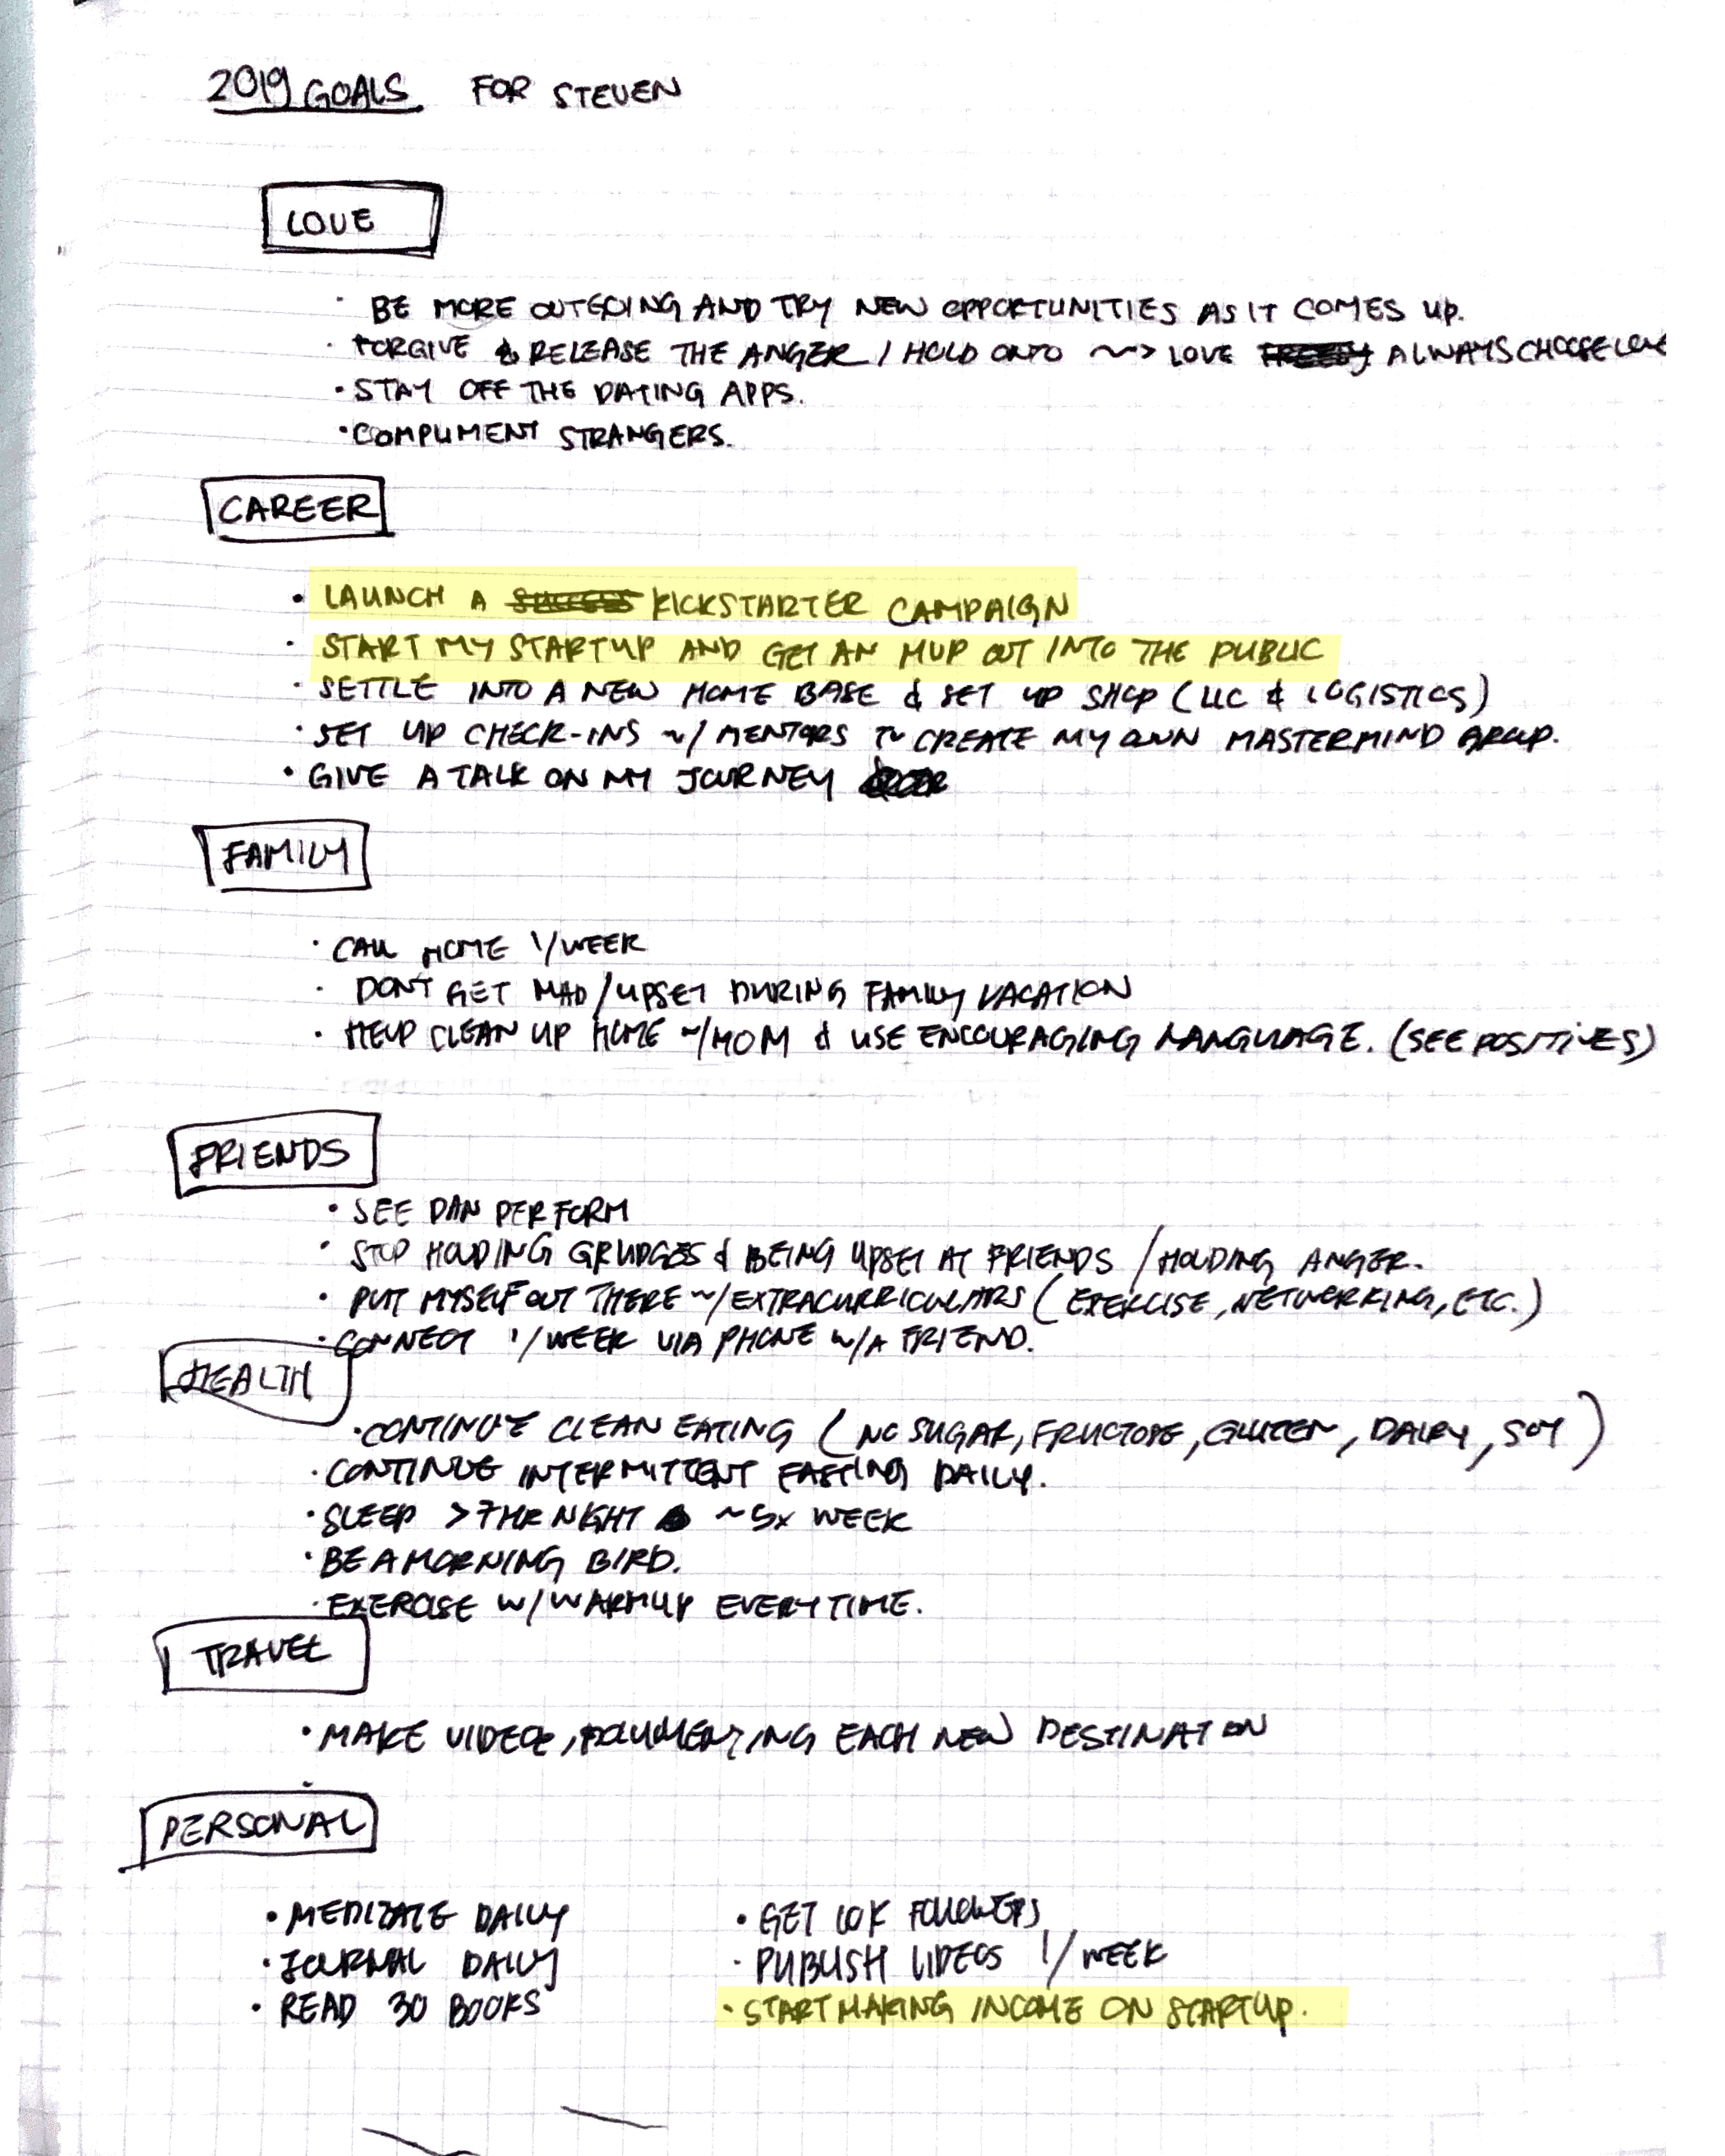 2019 GOALS FOR STEVEN
LOVE
· BE MORE OUTGOING AND TRY NEW OPPORTUNITIES AS IT COMES UP.
· FORGIVE & RELEASE THE ANGER I HOLD ONTO ~~> LOVE ALWAYS CHOOSE LOVE
· STAY OFF THE DATING APPS.
· COMPLIMENT STRANGERS.
CAREER
· LAUNCH A KICKSTARTER CAMPAIGN
· START MY STARTUP AND GET AN MVP OUT INTO THE PUBLIC
· SETTLE INTO A NEW HOME BASE & SET UP SHOP (LLC & LOGISTICS)
· SET UP CHECK-INS W/ MENTORS TO CREATE MY OWN MASTERMIND GROUP.
· GIVE A TALK ON MY JOURNEY
FAMILY
· CALL HOME 1/WEEK
· DON'T GET MAD/UPSET DURING FAMILY VACATION
· HELP CLEAN UP HOME W/MOM & USE ENCOURAGING LANGUAGE. (SEE POSITIVES)
FRIENDS
· SEE DAN PERFORM
· STOP HOLDING GRUDGES & BEING UPSET AT FRIENDS / HOLDING ANGER.
· PUT MYSELF OUT THERE W/ EXTRACURRICULARS (EXERCISE, NETWORKING, ETC.)
· CONNECT 1/WEEK VIA PHONE W/A FRIEND.
HEALTH
· CONTINUE CLEAN EATING (NO SUGAR, FRUCTOSE, GLUTEN, DAIRY, SOY)
· CONTINUE INTERMITTENT FASTING DAILY.
· SLEEP >7HR NIGHT ~5x WEEK
· BE A MORNING BIRD.
· EXERCISE W/ WARMUP EVERYTIME.
TRAVEL
· MAKE VIDEOS, DOCUMENTING EACH NEW DESTINATION
·
PERSONAL
· MEDITATE DAILY
· JOURNAL DAILY
· READ 30 BOOKS
· GET 10K FOLLOWERS
· PUBLISH VIDEOS 1/WEEK
· START MAKING INCOME ON STARTUP.